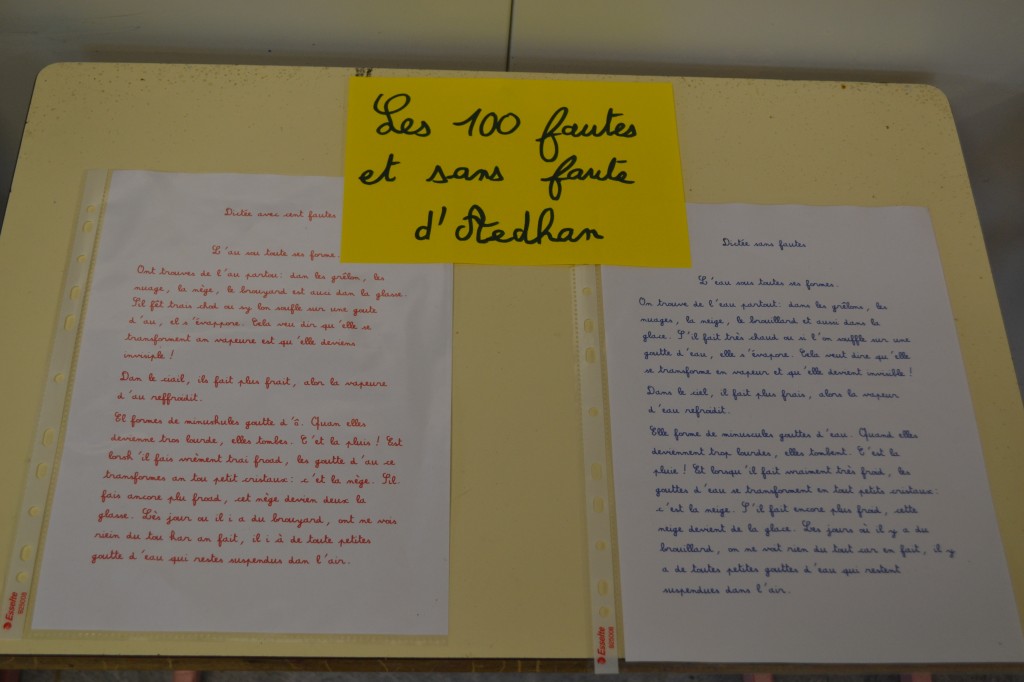 Les 100 fautes
et sans faute
d'Aedhan
Dictée avec cent fautes
L'au sus toute ses forme.
Ont trouves de l'au partou: dan les grêlon, les
nuage, la nège, le brouyard est aussi dan la glasse.
Sil fêt trais chod ou sy lon soufle sur une goute
d'au, el s'évappore. Cela veu dir qu'elle se
transforment an vapeure est qu'elle deviens
invisible !
Dan le ciail, ils fait plus frait, alor la vapeure
d'au reffroidit.
El formes de minuskules goutte d'ô. Quan elles
devienne tros lourde, elles tombes. C'et la pluis ! Est
lorsk'il fais vrément trai froad, les goutte d'au ce
transformes an tou petit cristaux: c'et la nège. Sil
fais ancore plu froad, set nège devien deux la
glasse. Lès jour ou il i a du brouyard, ont ne vois
riein du tou kar an fait, il i à de toute petites
goutte d'eau qui restes suspendues dan l'air.
Esselte
Dictée sans fautes
L'eau sous toutes ses formes.
On trouve de l'eau partout: dans les grêlons, les
nuages, la neige, le brouillard et aussi dans la
glace. S'il fait très chaud ou si l'on souffle sur une
goutte d'eau, elle s'évapore. Cela veut dire qu'elle
se transforme en vapeur et qu'elle devient invisible !
Dans le ciel, il fait plus frais, alors la vapeur
d'eau refroidit.
Elle forme de minuscules gouttes d'eau. Quand elles
deviennent trop lourdes, elles tombent. C'est la
pluie ! Et lorsqu'il fait vraiment très froid, les
gouttes d'eau se transforment en tout petits cristaux:
c'est la neige. S'il fait encore plus froid, cette
neige devient de la glace. Les jours où il y a du
brouillard, on ne voit rien du tout car en fait, il y
a de toutes petites gouttes d'eau qui restent
suspendues dans l'air.
Esselte